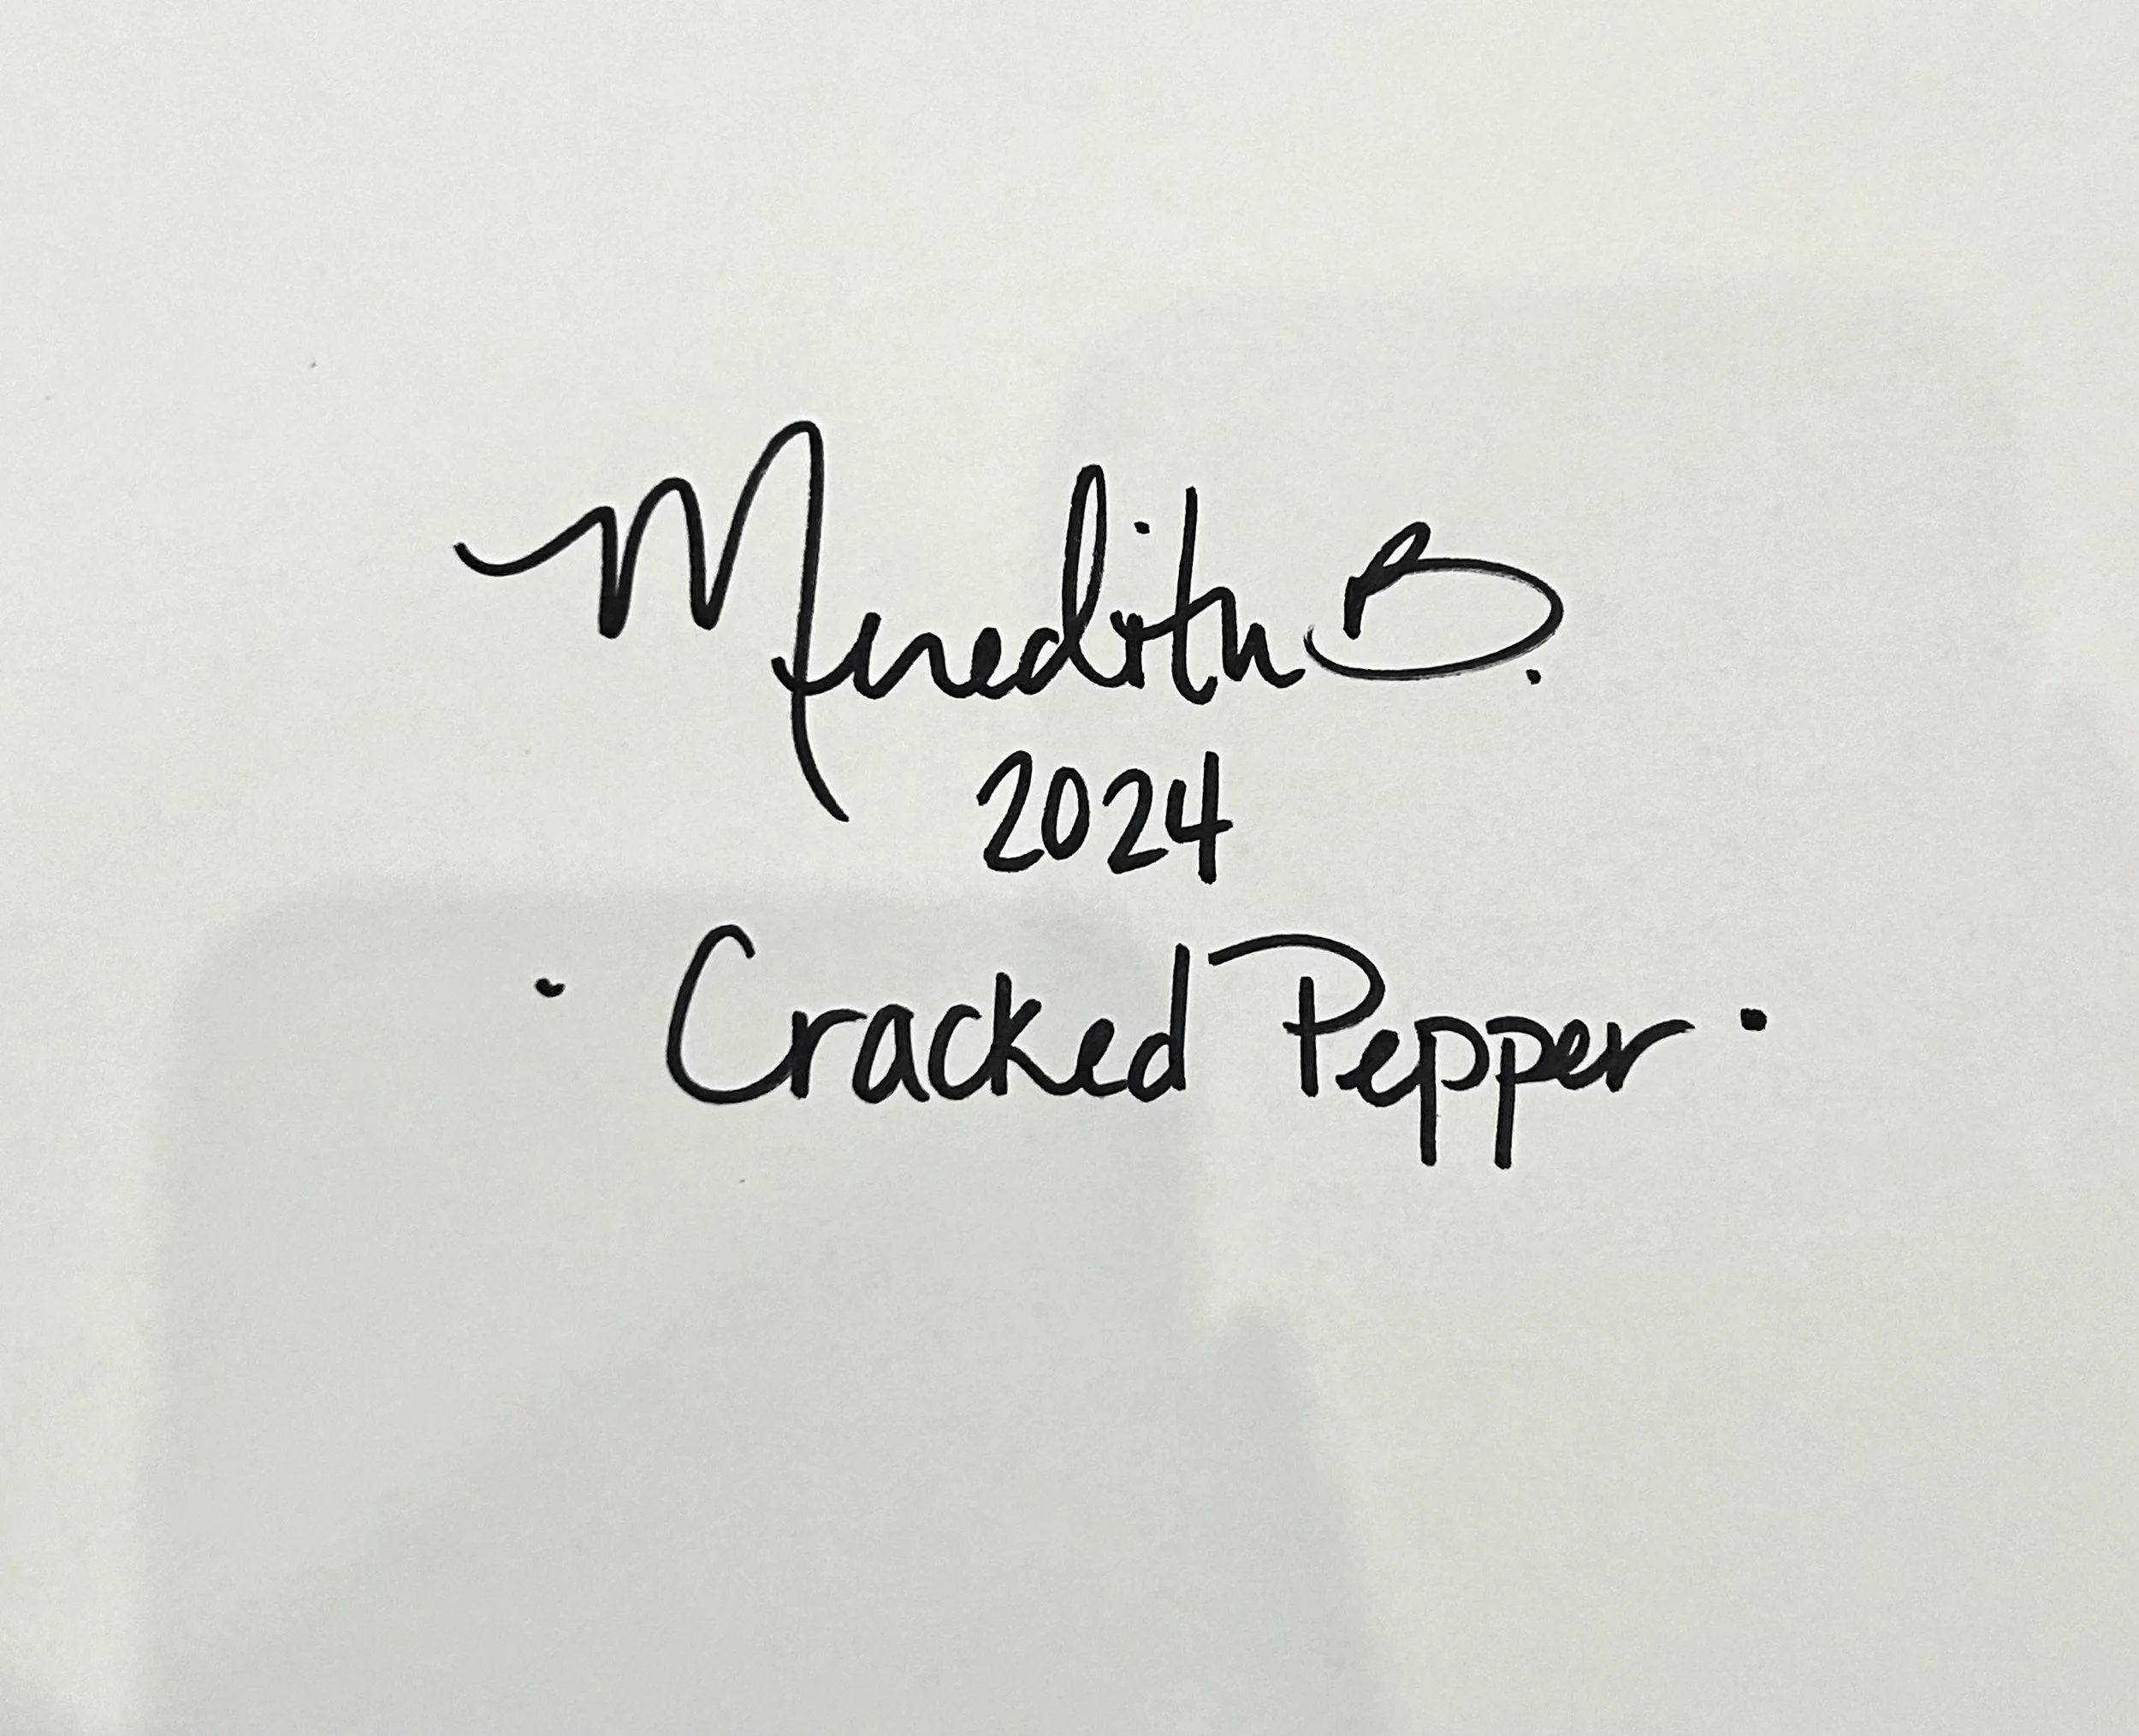 Meredith B.
2024
· Cracked Pepper ·